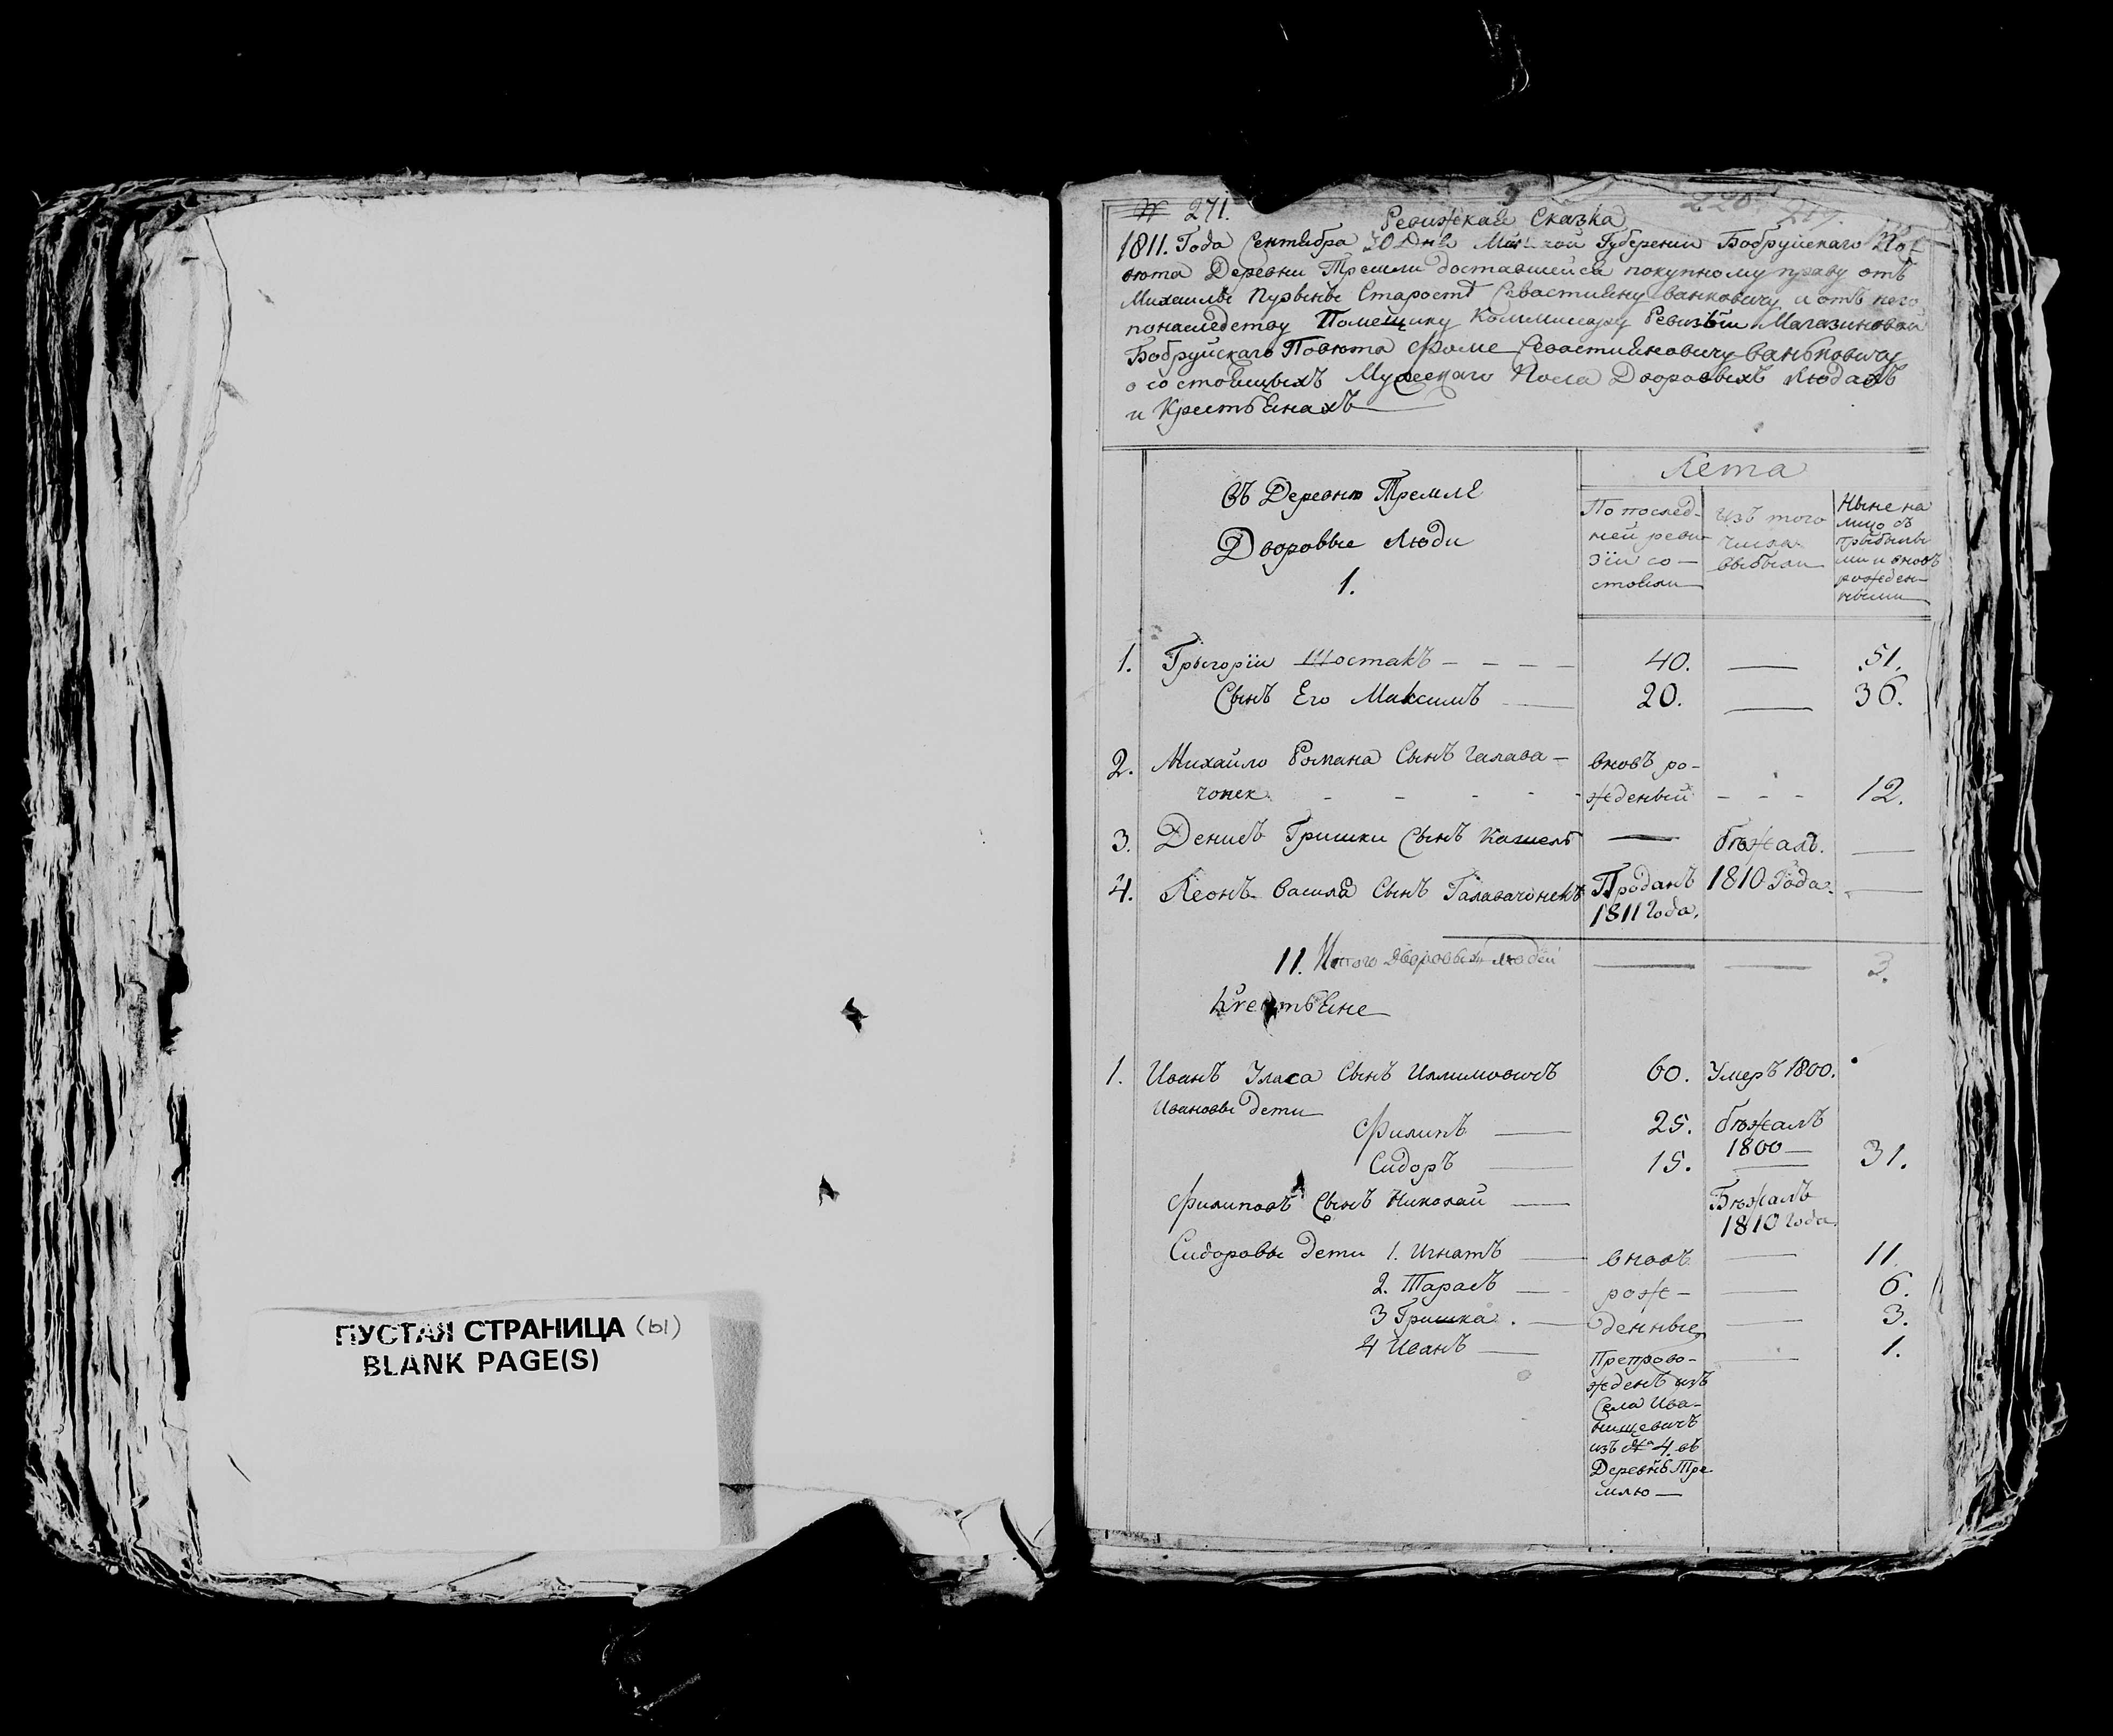 ПУСТАЯ СТРАНИЦА (ы)
BLANK PAGE(S)
№ 271.
Ревижская Сказка
1811. Года Сентября 30 Дня Минской Губернии Бобруйскаго Пов
юта Деревни Тремли доставшейся покупному праву отъ
Михаилы Старосте Севастияну Ванковичу и отъ него
понаследству Помещику Коммиссару Ревизыи Магазиновой
Бобруйскаго Повюта Фоме Севастияновичу Ваньковичу
о состоящыхъ Мужескаго Пола Дворовыхъ Людахъ
и Крестьянахъ
Лета
Въ Деревню Тремле
Дворовые Люди
1.
По послед-
ней реви
зіи со-
стояли
Изъ того
числа
выбыли
Ныне на
лицо съ
прыбылы
ми и вновъ
рожден-
ными
1. Грыгорiи Шостакъ - - - - 40. — 51.
Сынъ Его Максимъ — 20. — 36.
2. Михайло Романа Сынъ Галава- вновъ ро-
чонек - - - - - жденый - - - 12.
3. Денисъ Гришки Сынъ Кашель — бѣжалъ. —
4. Леонъ Васила Сынъ Галавачонекъ Проданъ 1810 Года. —
1811 Года.
11. Итого Дворовыхъ людей — — 3.
Крестьяне
1. Иванъ Уласа Сынъ Иллимовичъ 60. Умеръ 1800.
Ивановы Дети
Филипъ — 25. бѣжалъ
1800 —
Сидоръ — 15. — 31.
Филиповъ Сынъ Николай — Бѣжалъ
1810 Года.
Сидоровы Дети 1. Игнатъ — вновъ — 11.
2. Тарасъ — рож- — 6.
3 Гришка. — денные — 3.
4 Иванъ — — 1.
Препрово-
жденъ изъ
Села Ива-
нищевичъ
изъ № 4 въ
Деревнѣ Тре
млю —